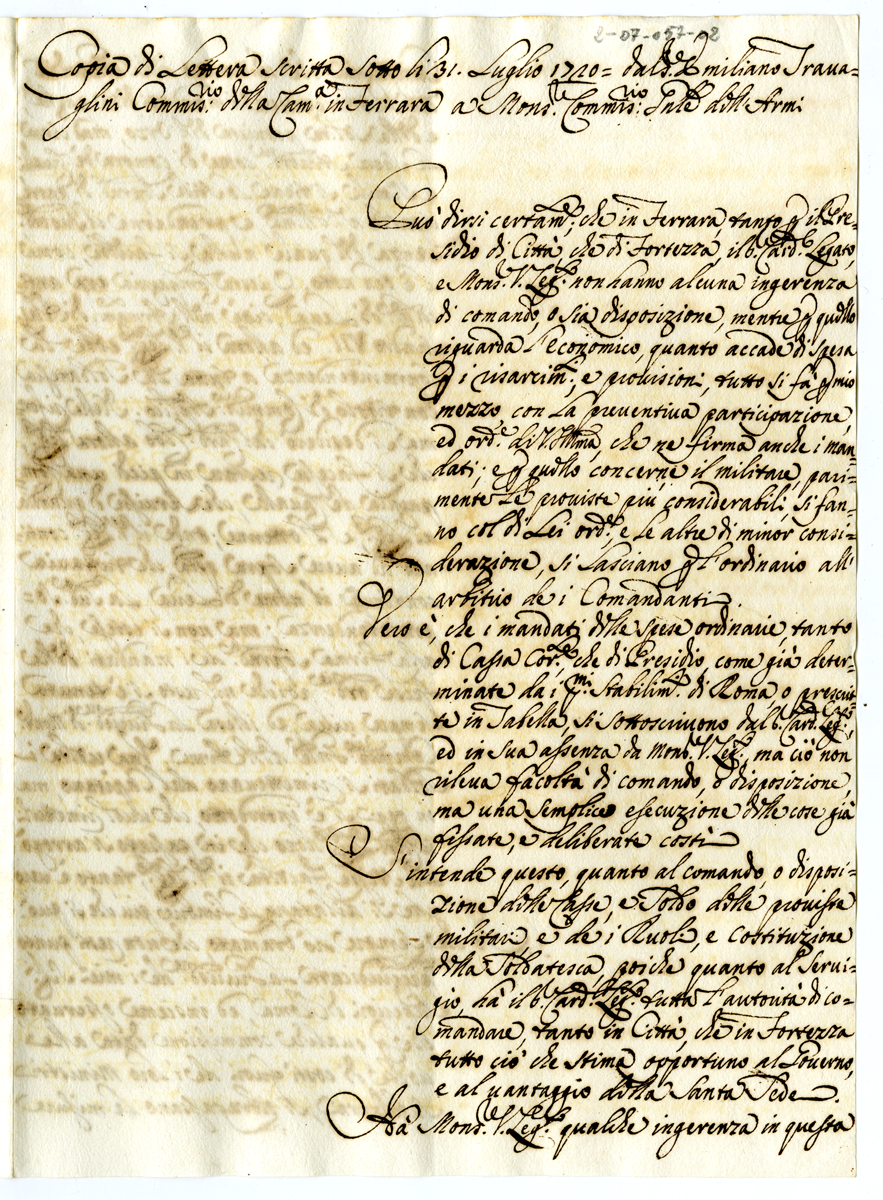 2-07-057-02
Copia di Lettera scritta sotto li 31. Luglio 1720= dal S.r Emiliano Trava=
glini Commis:rio della Cam:a in Ferrara a Mons:re Commis:rio Gnle delle Armi
Può dirsi certam.te, che in Ferrara, tanto p il Pre=
sidio di Città, che di Fortezza, il S. Card.l Legato,
e Mons.r V. Leg.to non hanno alcuna ingerenza
di comando, o sia disposizione, mentre p quello
riguarda l'economico, quanto accade di spesa
p i risarcim.ti, e provisioni, tutto si fà p mio
mezzo con la preventiva participazione,
ed ord.e di V.S. Illma, che ne firma anche i man=
dati; e p quello concerne il militare, pari=
mente le proviste più considerabili, si fan=
no col di Lei ord.e, e le altre di minor consi=
derazione, si lasciano p l'ordinario all'
arbitrio de i Comandanti.
Vero è, che i mandati delle spese ordinarie, tanto
di Cassa Cor.te, che di Presidio, come già deter=
minate da i p.mi Stabilim.ti di Roma, o prescrit=
te in Tabella, si sottoscrivono dal S. Card. Leg.to,
ed in sua assenza da Mons.r V. Leg.to, ma ciò non
rileva facoltà di comando, o disposizione,
ma una semplice esecuzione delle cose già
fissate, e deliberate costì
S'intende questo, quanto al comando, o disposi=
zione delle Casse, e Soldo delle proviste
militari, e de i Ruoli, e costituzione
della Soldatesca, poiche quanto al Servi=
gio, hà il S. Card. Leg.to tutta l'autorità di co=
mandare, tanto in Città, che in Fortezza
tutto ciò che stima opportuno al Governo,
e al vantaggio della Santa Sede.
Hà Mons.r V. Leg.to qualche ingerenza in questa